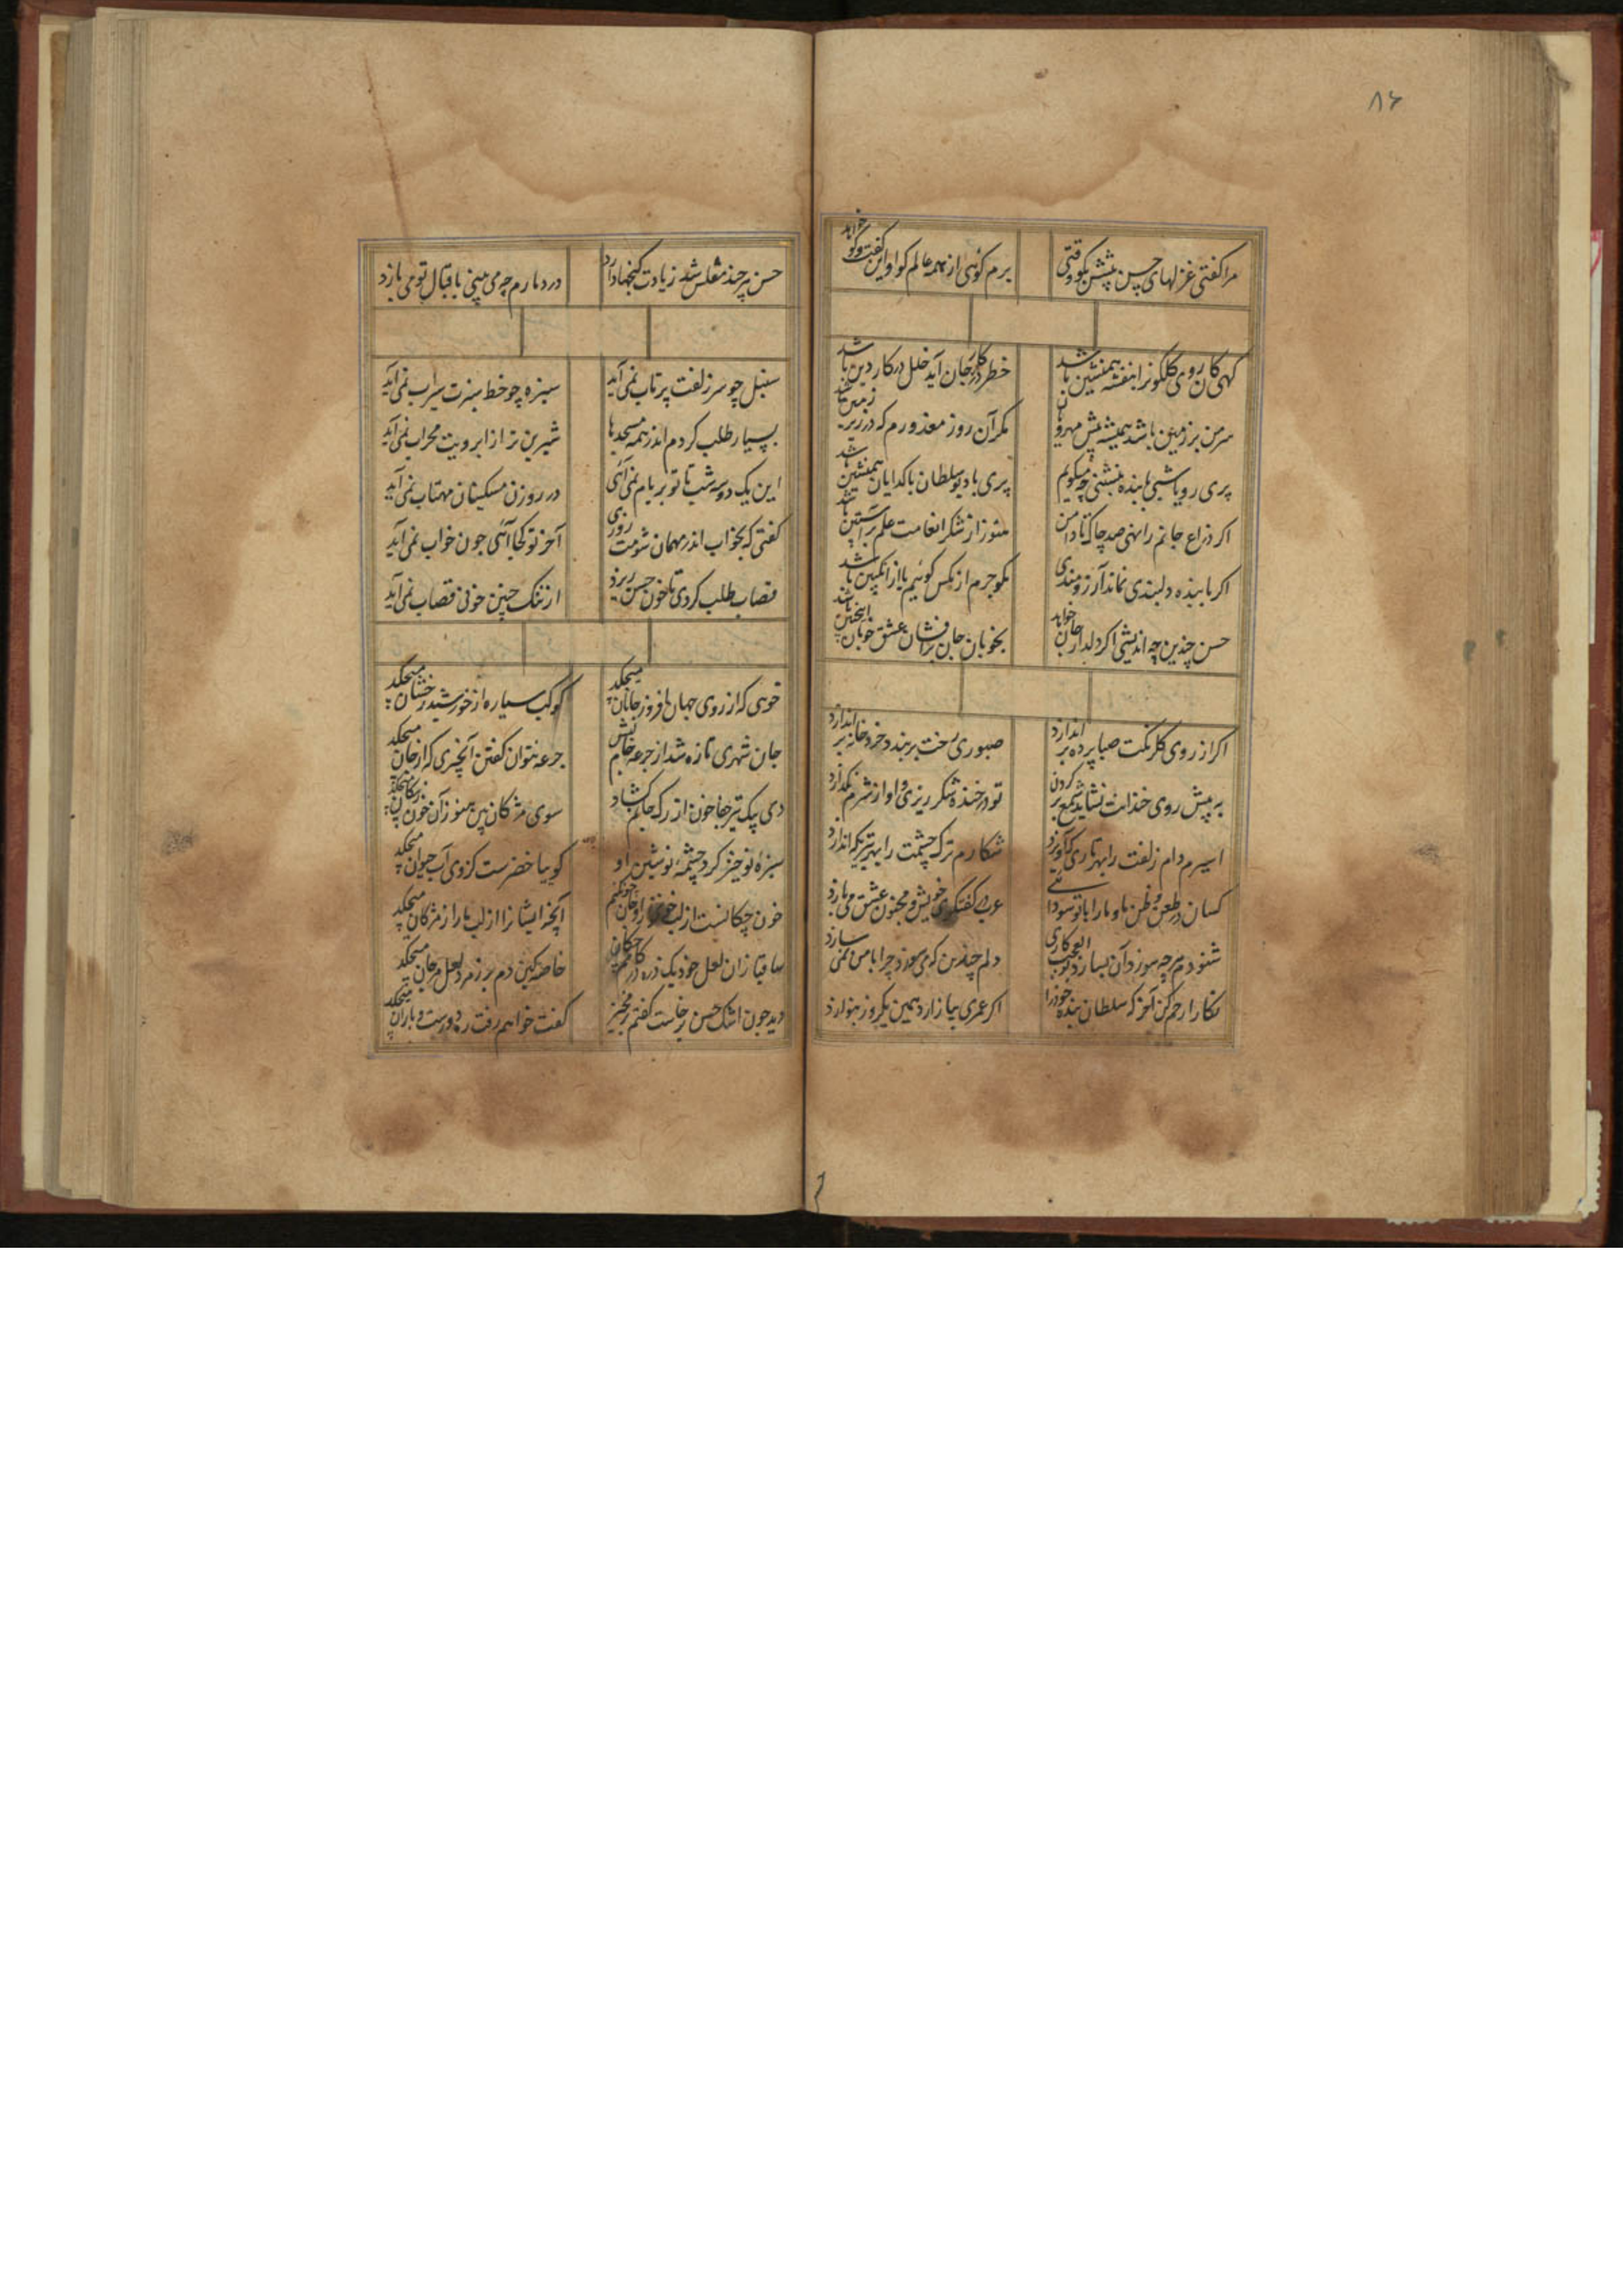 ۸۶
مرا گفتی غزلهای حسن پیشش بگو وقتی برم گوئی از همه عالم کو او این گفت و گو خواهد
گهی کان روی گلگونرا بنفشه همنشین باشد خطر در کار جان آید خلل در کار دین باشد
سر من بر زمین باشد همیشه پیش مهرویان مگر آن روز معذورم که در زیر زمین باشد
پری رویا شبی با بنده بنشینی چه میگویم پری با دیو سلطان با گدایان همنشین باشد
اگر ذراع جانم را نهی صد چاک تا دامن هنوز از شکر انعامت علم بر آستین باشد
اگر با بنده دلبندی نماند آرزومندی بگو جرم از مگس گوئیم یا از انگبین باشد
حسن چندین چه اندیشی اگر دلدار جان خواهد بخوبان جان برافشان عشق خوبان اینچنین باشد
اگر از روی گلرنگت صبا پرده براندازد صبوری رخت بربندد خرد خانه براندازد
به پیش روی خندانت نشاید شمع بر کردن تو در خنده شکر ریزی و او از شرم بگدازد
اسیرم دام زلفت را بهر تاری که آویزد شکارم ترک چشمت را بهر تیری که اندازد
کسان در طعن و ظن ما و مارا با تو سودائی عرب در گفتگوی خویش و مجنون عشق می بازد
شنودم هرچه سوزد آن بسازد بوالعجب کاری دلم چندین که می سوزد چرا با من نمی سازد
نگارا رحم کن آخر که سلطان بنده خودرا اگر عمری بیازارد همین یکروز بنوازد
حسن هرچند مفلس شد زیادت گنجها دارد در دیارم چه می بینی باقبال تو می بازد
سنبل چو سر زلفت پرتاب نمی آید سبزه چو خط سبزت سیراب نمی آید
بسیار طلب کردم اندر همه مسجدها شیرین تر از ابرویت محراب نمی آید
این یک دو سه شب تا تو بر بام نمی آئی در روزن مسکینان مهتاب نمی آید
گفتی که بخواب اندر مهمان شومت روزی آخر تو کجا آئی چون خواب نمی آید
قصاب طلب کردی تا خون حسن ریزد از ننگ چنین خونی قصاب نمی آید
خوی که از روی جهان افروز جانان میچکد کوکب سیاره از خورشید رخشان میچکد
جان شهری تازه شد از جرعه جام لبش جرعه نتوان گفتن آنچیزی که از جان میچکد
دی یک تیر جفا خون از رگ جانم گشاد سوی مژگان بین هنوز آن خون ز پیکان میچکد
سبزه نوخیز گرد چشمه نوشین او گوییا خضرست کزوی آب حیوان میچکد
آنچه ایشانرا از لب ما را ز مژگان میچکد
ساقیا زان لعل خود یک ذره در کامم چکان خاصه کین دم بر زمرد لعل و مرجان میچکد
دید چون اشک حسن برخاست گفتم برمخیز گفت خواهم رفت ره دورست و باران میچکد